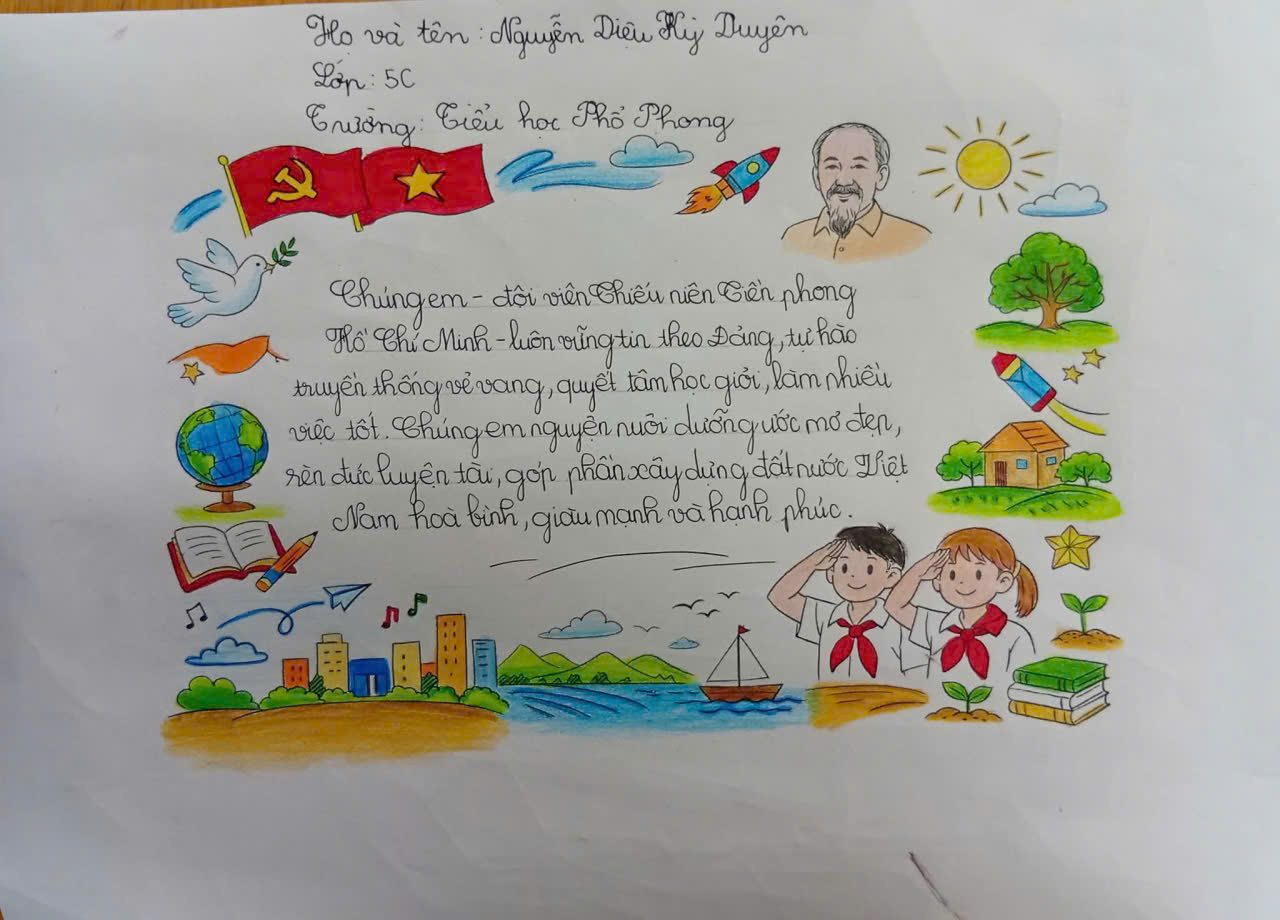 Họ và tên : Nguyễn Diệu Kỳ Duyên
Lớp : 5C
Trường : Tiểu học Phổ Phong
Chúng em - đội viên Thiếu niên Tiền phong
Hồ Chí Minh - luôn vững tin theo Đảng, tự hào
truyền thống vẻ vang, quyết tâm học giỏi, làm nhiều
việc tốt. Chúng em nguyện nuôi dưỡng ước mơ đẹp,
rèn đức luyện tài, góp phần xây dựng đất nước Việt
Nam hoà bình, giàu mạnh và hạnh phúc.